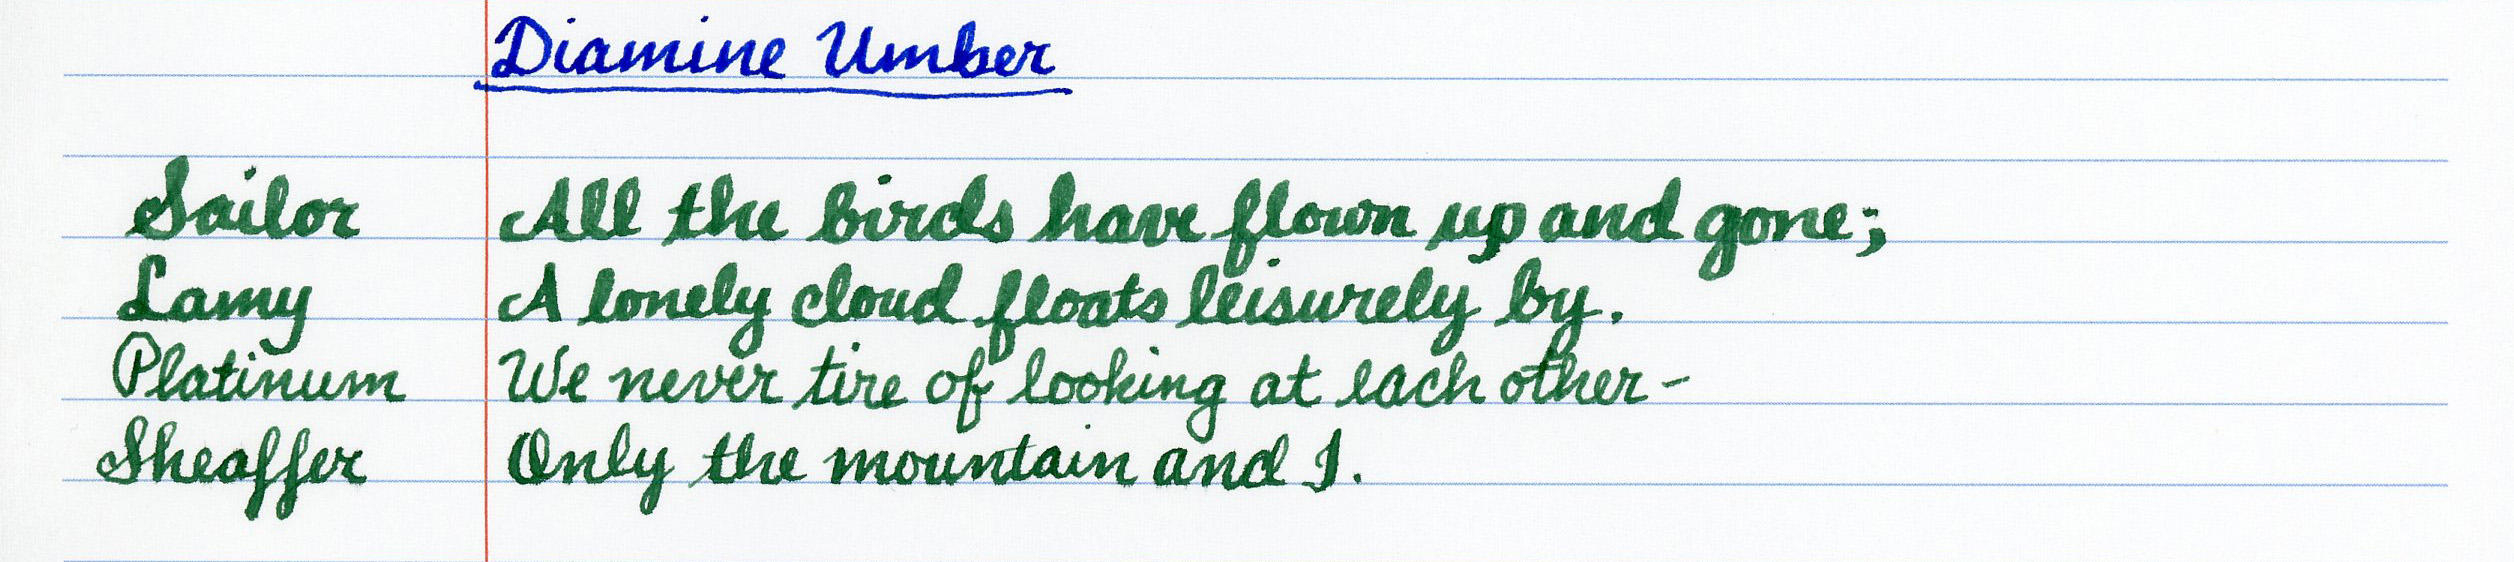 Diamine Umber
Sailor All the birds have flown up and gone;
Lamy A lonely cloud floats leisurely by.
Platinum We never tire of looking at each other-
Sheaffer Only the mountain and I.